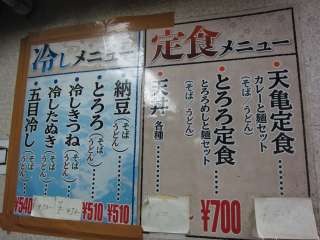 冷しメニュー
納豆(そば うどん)……
とろろ(そば うどん)……
冷しきつね(そば うどん)……
冷したぬき(そば うどん)……
五目冷し(そば うどん)……
¥510
¥510
¥540
定食メニュー
天亀定食……
カレーと麺セット
(そば うどん)
とろろ定食……
とろろめしと麺セット
(そば うどん)
天丼……
各種
¥700